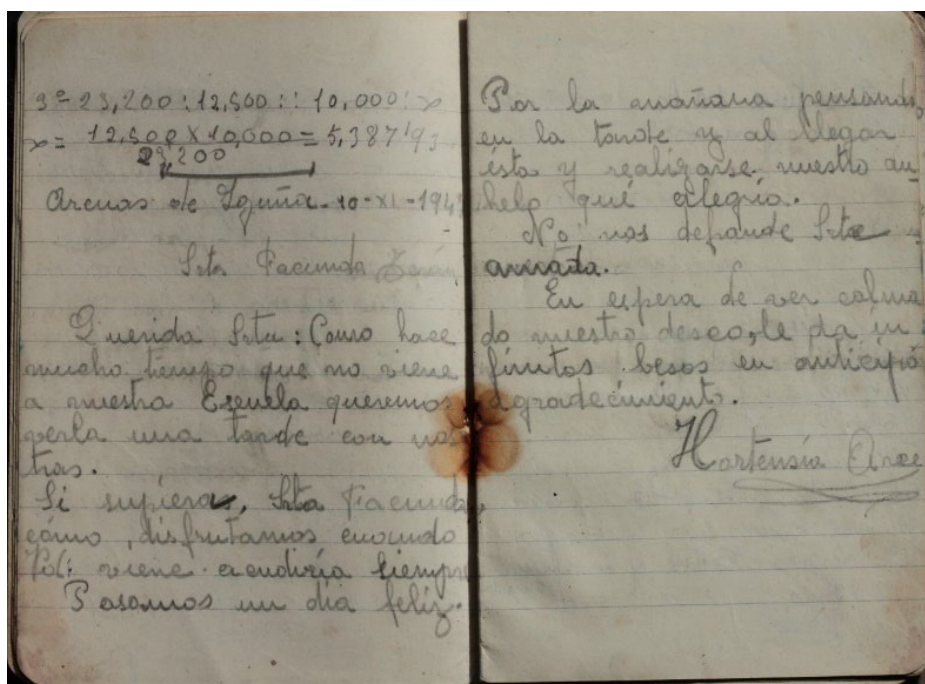 3º 23,200 : 12,500 :: 10,000 : x
x = 12,500 x 10,000 = 5,387'93
23,200
Arenas de Iguña - 10 - XI - 194
Srta Facunda
Querida Srta : Como hace
mucho tiempo que no viene
a nuestra Escuela queremos
verla una tarde con noso
tras.
Si supiera, Srta Facunda,
cómo, disfrutamos cuando
Vd: viene acudiría siempre
Pasamos un dia feliz.
Por la mañana pensando,
en la tarde y al llegar
ésta y realizarse nuestro an
helo qué alegría.
No nos defraude Srta
amada.
En espera de ver colma
do nuestro deseo, le da in
finitos besos en anticipo
agradecimiento.
Hortensia Arce